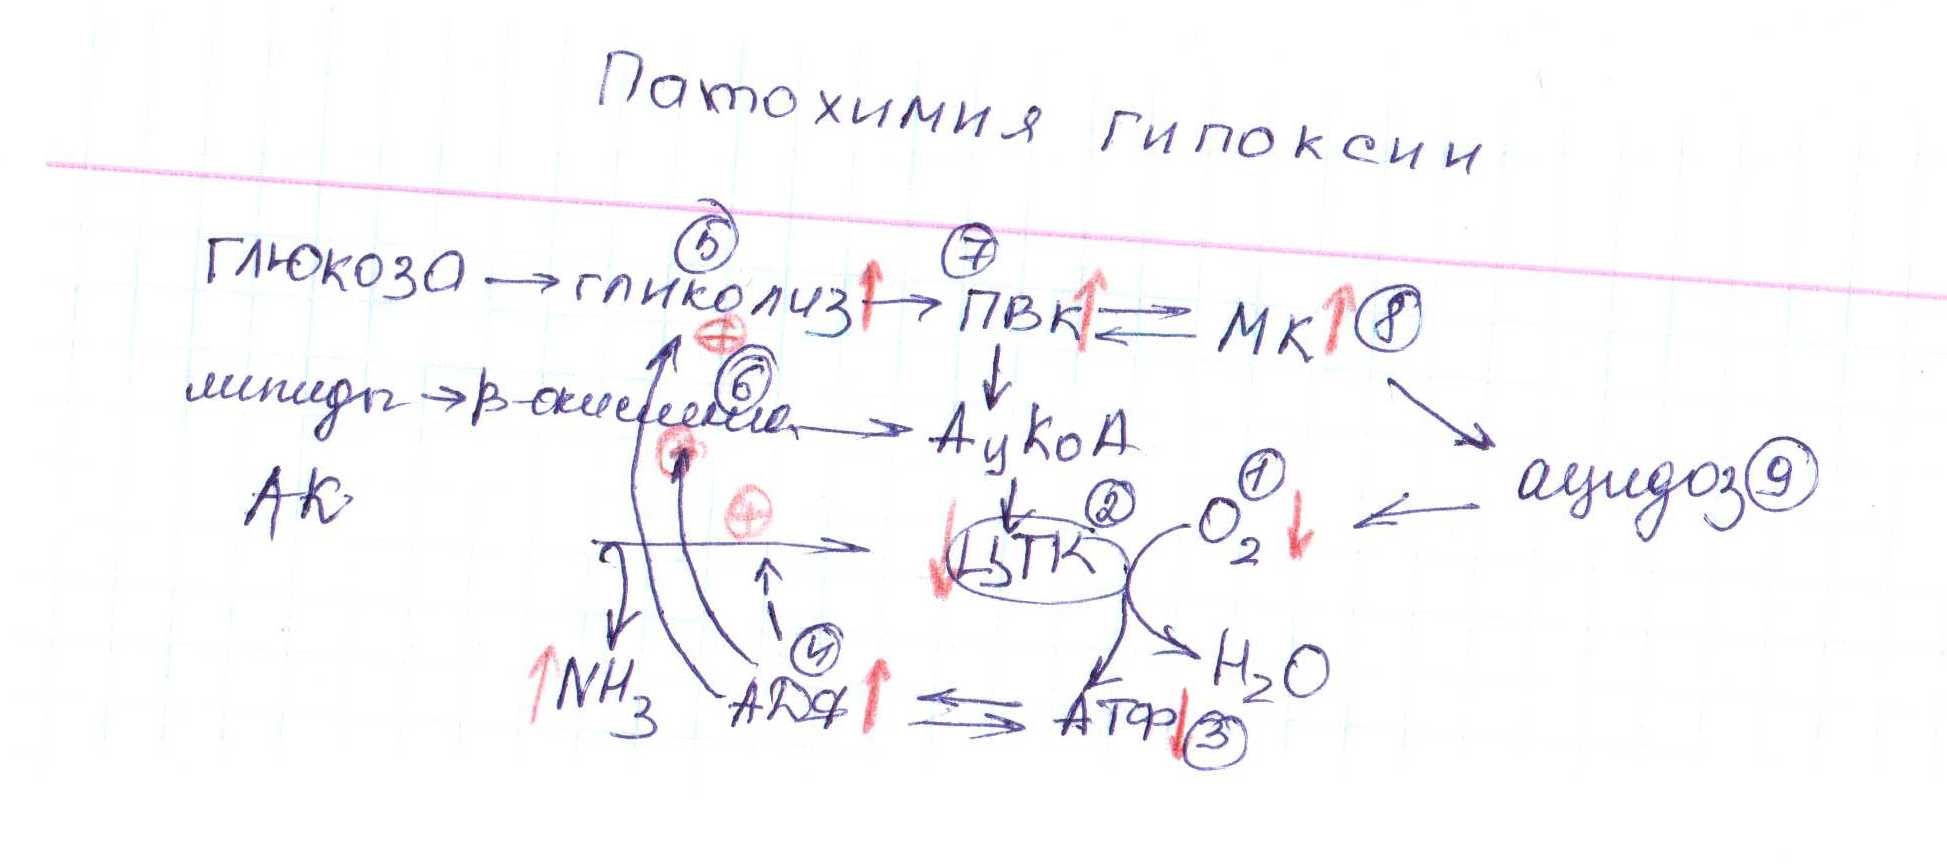 Патохимия гипоксии
5 7
глюкоза → гликолиз ↑ → ПВК ↑ ⇌ МК ↑ 8
⊕
6
липиды → β-окисление → АцКоА
⊕
АК ⊕ 2 1 ацидоз 9
↓ ЦТК O₂ ↓
4 H₂O
↑ NH₃ АДФ ↑ ⇌ АТФ ↓ 3